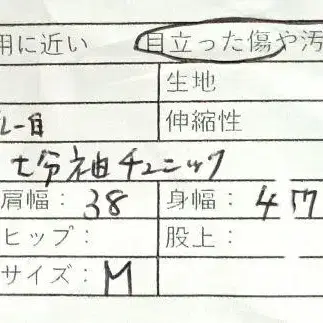 用に近い 目立った傷や汚
生地
伸縮性
七分袖チュニック
肩幅: 38 身幅: 47
ヒップ: 股上:
サイズ: M